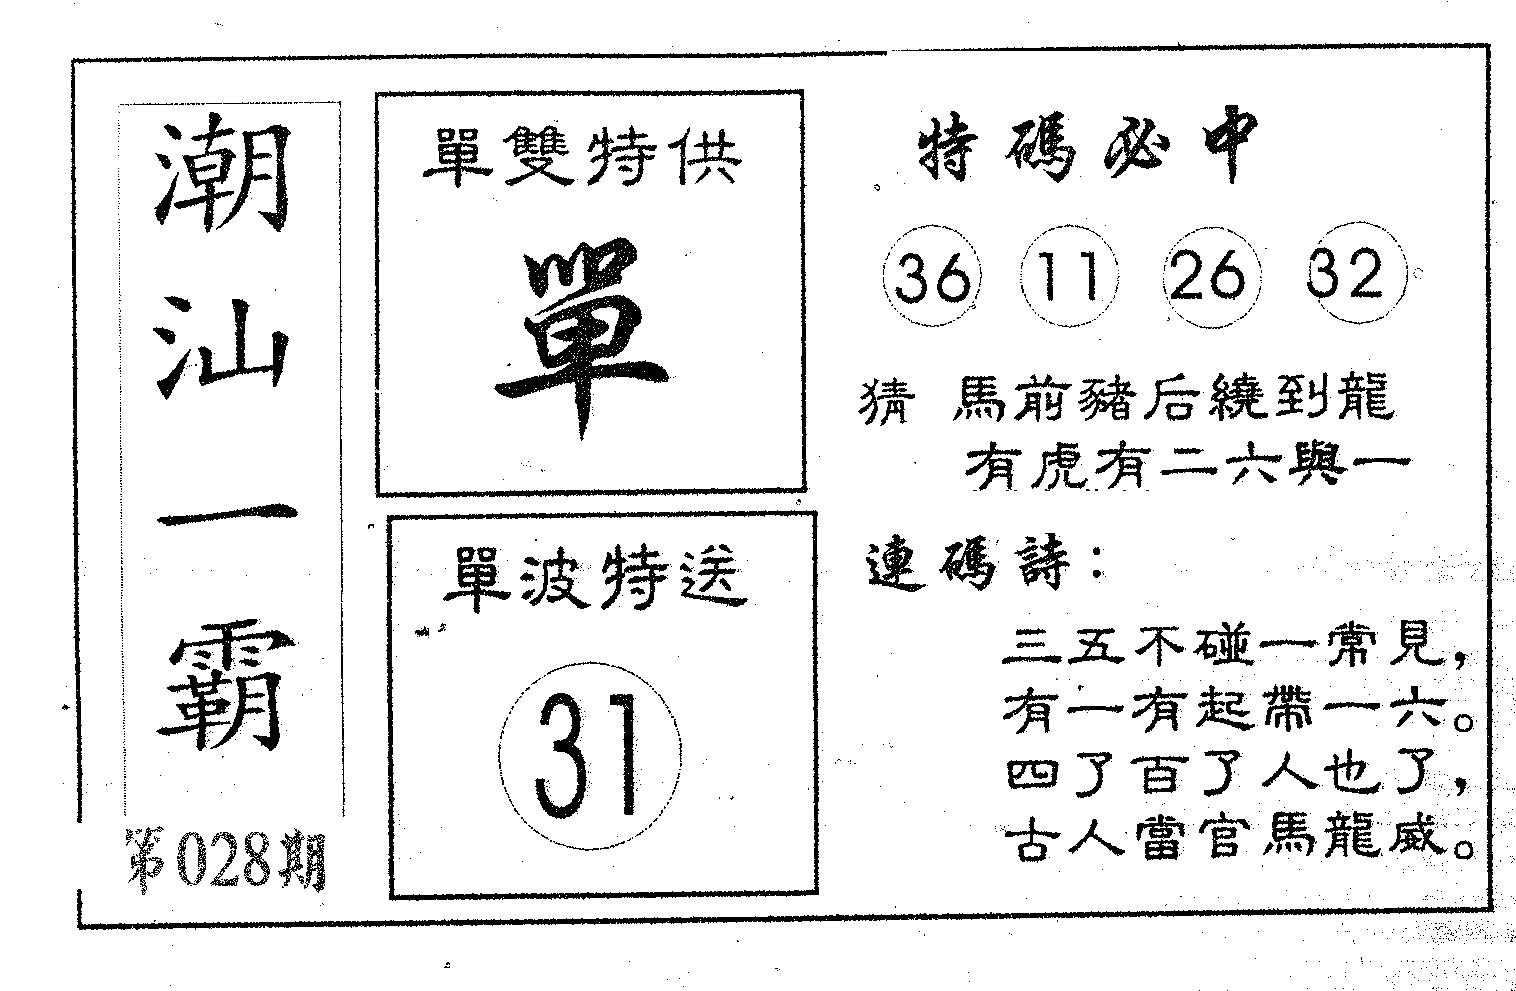 潮汕一霸
第028期
單雙特供
單
單波特送
31
特碼必中
36 11 26 32
猜 馬前豬后繞到龍
有虎有二六與一
連碼詩：
三五不碰一常見，
有一有起帶一六。
四了百了人也了，
古人當官馬龍威。